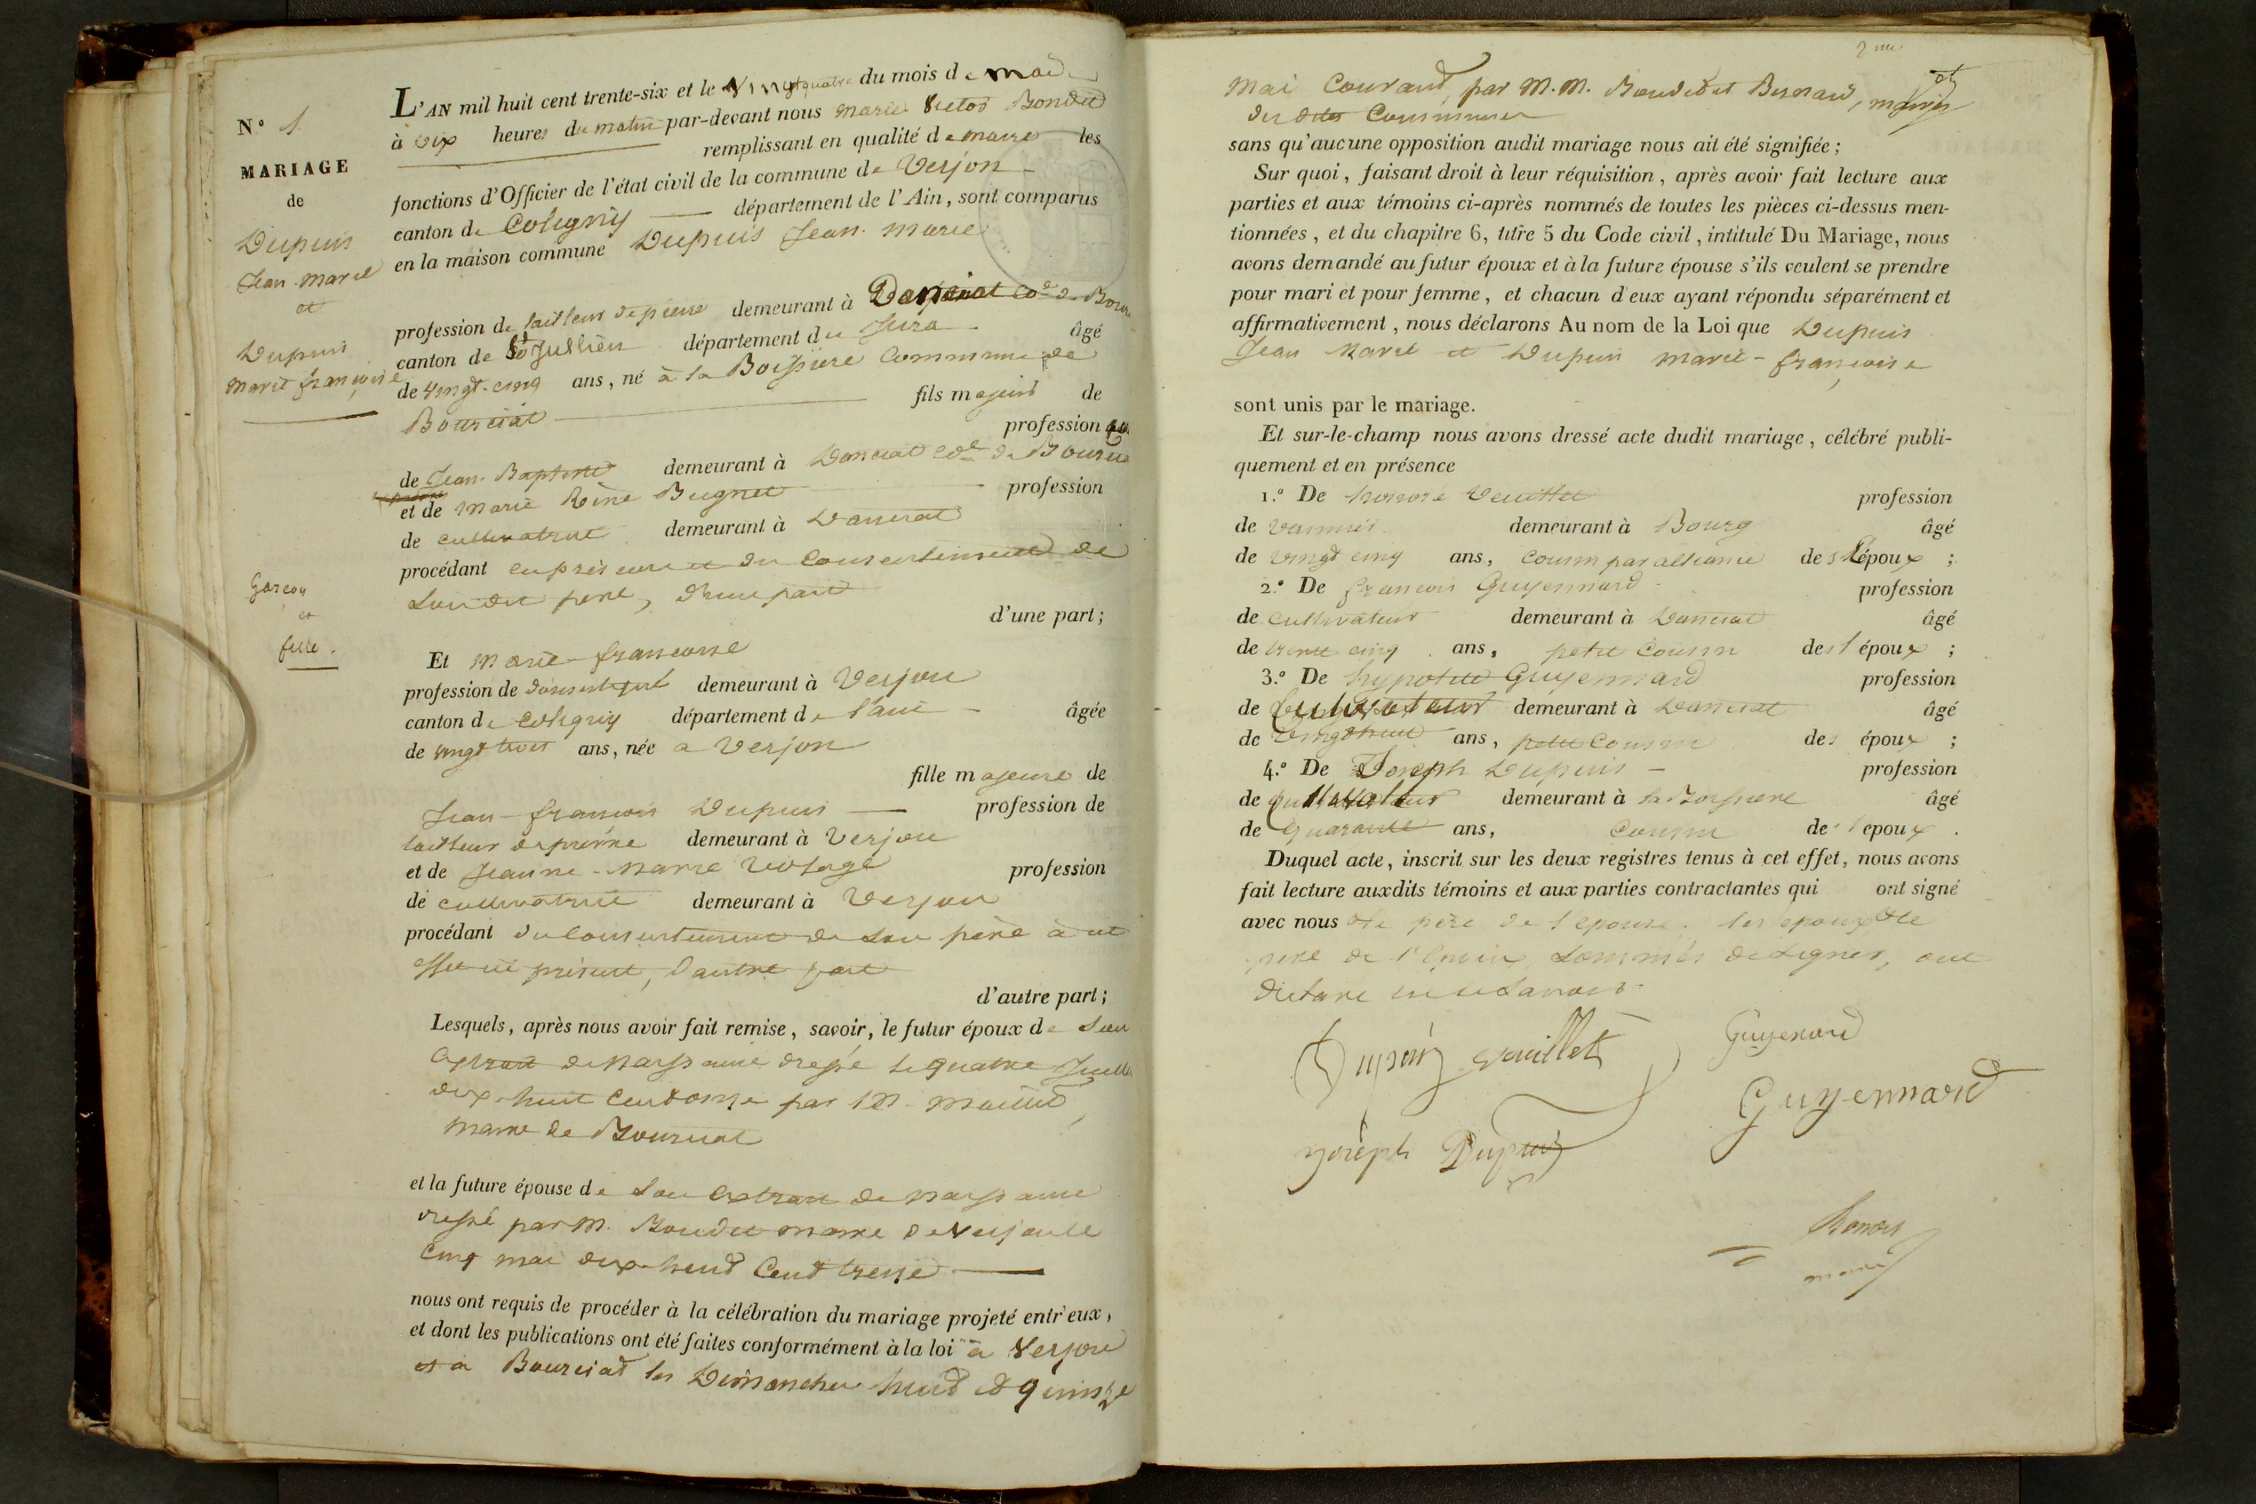 N° 1.
MARIAGE
de
Dupuis
Jean-Marie
et
Dupuis
Marie françoise
Garçon
et
fille.
L'AN mil huit cent trente-six et le vingt quatre du mois de mai
à dix heures du matin par-devant nous Marie Victor Bondet
remplissant en qualité de maire les
fonctions d'Officier de l'état civil de la commune de Verjon
canton de Coligny département de l'Ain, sont comparus
en la maison commune Dupuis Jean-Marie
profession de tailleur de pierre demeurant à Danciat Cne de Bourciat
canton de St Jullien département du Jura âgé
de vingt-cinq ans, né à la Boissiere Commune de
Bourciat fils majeur de
profession
de Jean-Baptiste demeurant à Danciat Cne de Bourcia
et de Marie Reine Beignet profession
de cultivatrice demeurant à Danciat
procédant en présence et du consentement de
son dit père, d'une part
d'une part;
Et Marie-françoise
profession de demeurant à Verjon
canton de Coligny département de l'ain âgée
de vingt trois ans, née à Verjon
fille majeure de
Jean-françois Dupuis profession de
tailleur de pierre demeurant à Verjon
et de Jeanne-Marie profession
de cultivatrice demeurant à Verjon
procédant du consentement de son père à cet
effet ici présent, d'autre part
d'autre part;
Lesquels, après nous avoir fait remise, savoir, le futur époux de son
extrait de naissance dressé le quatre Juillet
dix-huit cent onze par M.
Maire de Bourciat
et la future épouse de son extrait de naissance
dressé par M. Bondet maire de Verjon le
cinq mai dix-huit cent treize
nous ont requis de procéder à la célébration du mariage projeté entr'eux,
et dont les publications ont été faites conformément à la loi à Verjon
et à Bourciat les Dimanches huit et quinze
2me
mai courant, par M. M. Bondet et Besnard, maires
des dites Communes
sans qu'aucune opposition audit mariage nous ait été signifiée;
Sur quoi, faisant droit à leur réquisition, après avoir fait lecture aux
parties et aux témoins ci-après nommés de toutes les pièces ci-dessus men-
tionnées, et du chapitre 6, titre 5 du Code civil, intitulé Du Mariage, nous
avons demandé au futur époux et à la future épouse s'ils veulent se prendre
pour mari et pour femme, et chacun d'eux ayant répondu séparément et
affirmativement, nous déclarons Au nom de la Loi que Dupuis
Jean Marie et Dupuis Marie-françoise
sont unis par le mariage.
Et sur-le-champ nous avons dressé acte dudit mariage, célébré publi-
quement et en présence
1.° De honoré Veuillet profession
de vannier demeurant à Bourg âgé
de vingt cinq ans, cousin par alliance des époux;
2.° De françois Guyennard profession
de cultivateur demeurant à Danciat âgé
de trente cinq ans, petit cousin de l'époux;
3.° De hypolite Guyennard profession
de Cultivateur demeurant à Danciat âgé
de vingt huit ans, petit cousin des époux;
4.° De Joseph Dupuis profession
de cultivateur demeurant à la Boissiere âgé
de quarante ans, cousin de l'époux.
Duquel acte, inscrit sur les deux registres tenus à cet effet, nous avons
fait lecture auxdits témoins et aux parties contractantes qui ont signé
avec nous et le père de l'épouse. les époux et le
père de l'époux, sommés de signer, ont
déclaré ne le savoir
Dupuis Veuillet Guyenard
Guyennard
Joseph Dupuis
maire